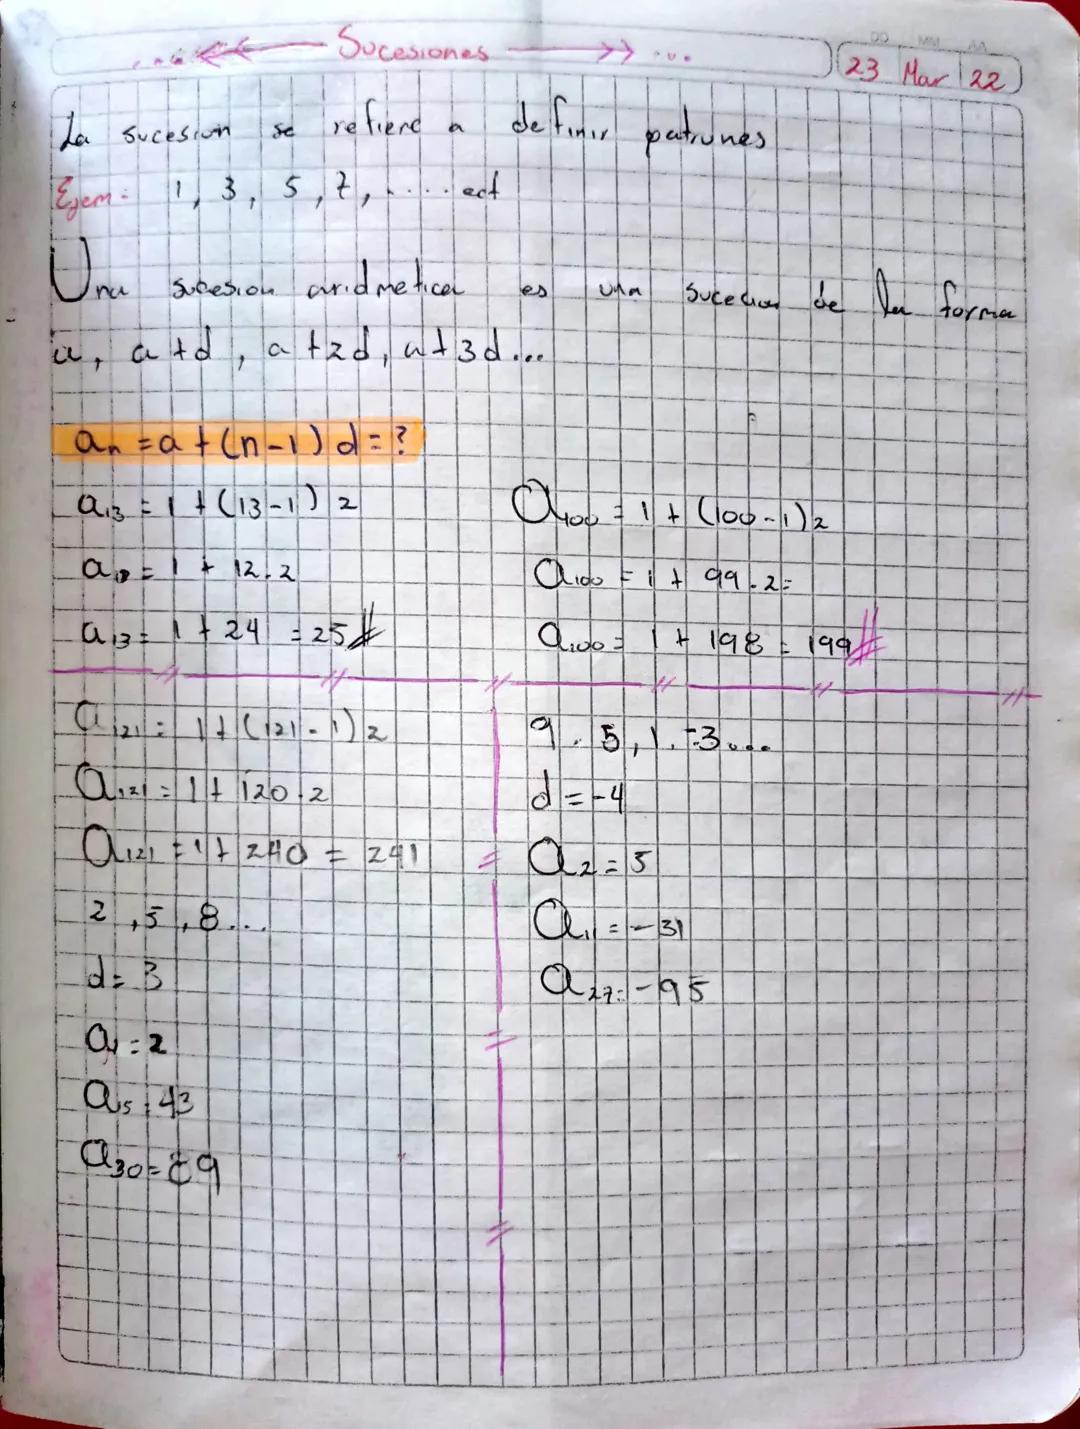 Sucesiones
DD MM AA
23 Mar 22
La sucesion se refiere a definir patrones
Ejem: 1, 3, 5, 7, ..... ect
Una sucesion aridmetica es una sucecion de la forma
a, a+d, a+2d, a+3d...
an = a + (n-1) d = ?
a13 = 1 + (13-1) 2
a13 = 1 + 12.2
a13 = 1 + 24 = 25
a100 = 1 + (100-1)2
a100 = 1 + 99.2=
a100 = 1 + 198 = 199
a121 = 1 + (121-1)2
a121 = 1 + 120.2
a121 = 1 + 240 = 241
2, 5, 8...
d = 3
a1 = 2
a15 = 43
a30 = 89
9. 5, 1. -3...
d = -4
a2 = 5
a11 = -31
a27 = -95